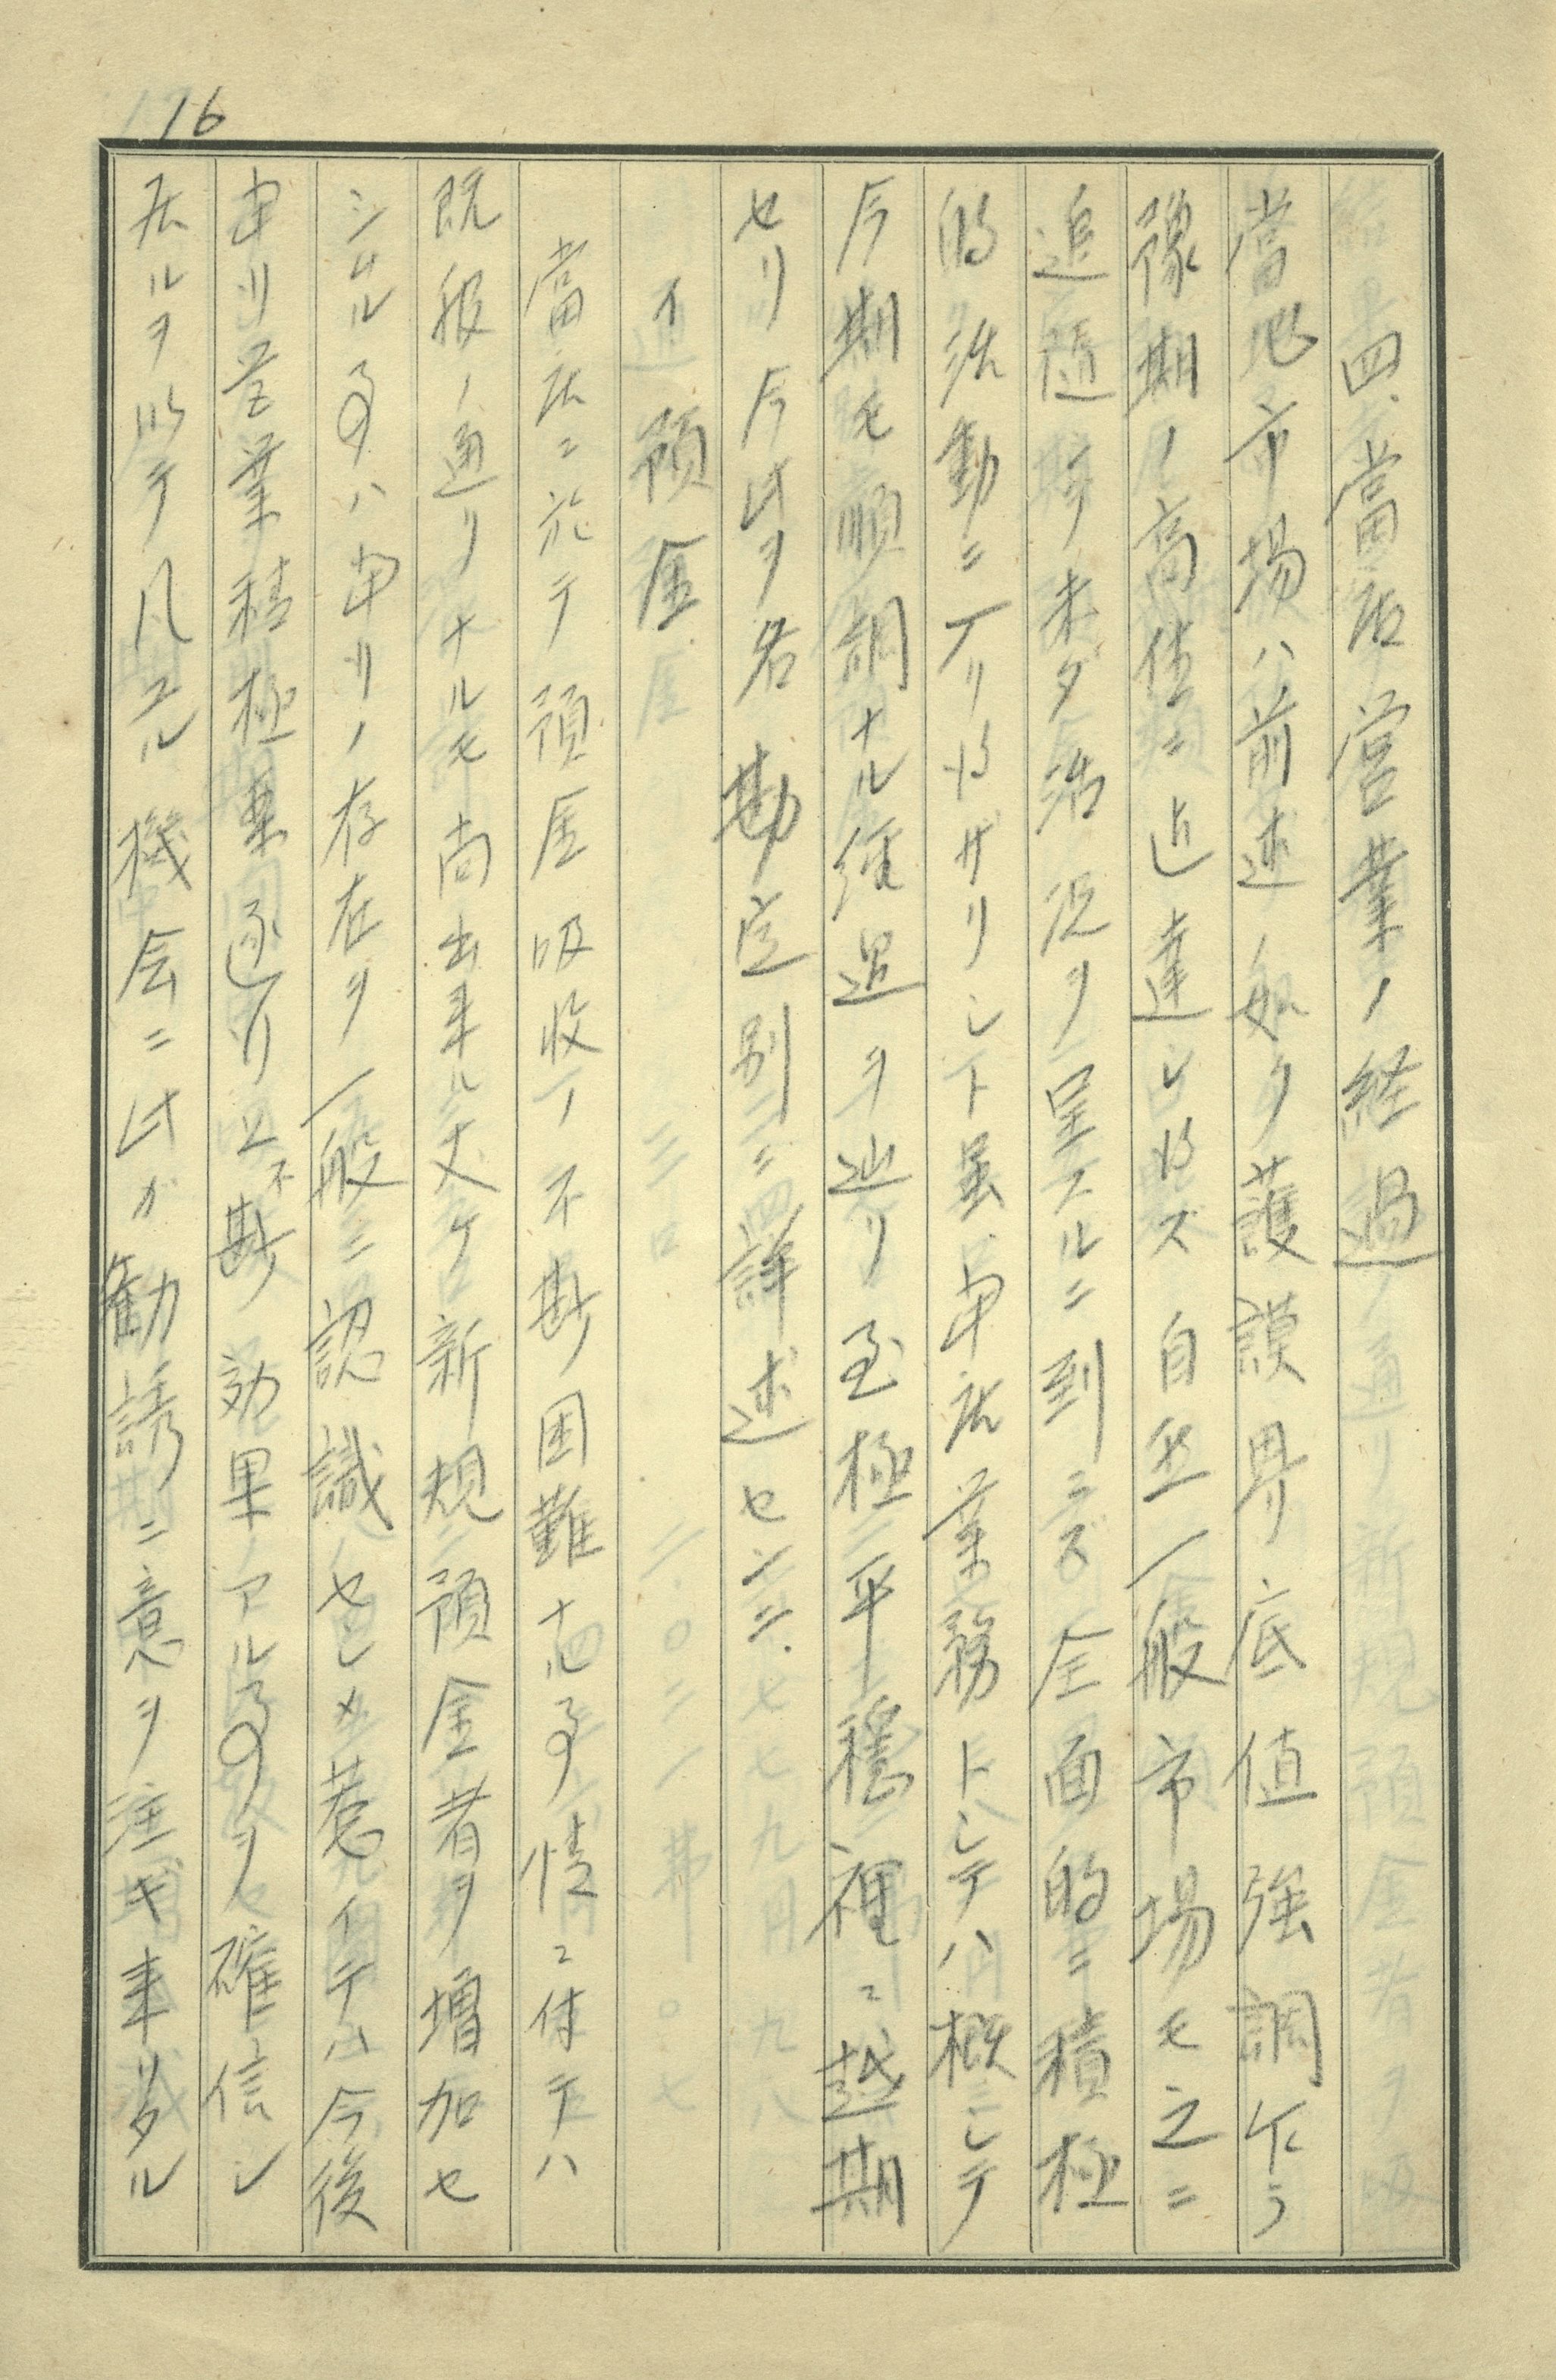 16
四、當店営業ノ経過
當地市場ハ前述ノ如ク護謨界底値強調乍ラ
豫期ノ高値ニ近達シ得ズ自然一般市場モ之ニ
追随シ未ダ活況ヲ呈スルニ到ラズ全面的ニ積極
的活動ニ入リ得ザリシト虽、当店業務トシテハ概シテ
今期モ順調ナル経過ヲ辿リ至極平穏裡ニ越期
セリ今此ヲ各勘定別ニ詳述センニ.
イ、預金
當店ニ於テ預金吸收ノ不尠困難ナル事情ニ付テハ
既報ノ通リナルモ尚出来ル丈ケ新規預金者ヲ増加セ
シムル事ハ申リノ存在ヲ一般ニ認識セシメ惹イテハ今後
申リ営業積極策遂リ上不尠効果アル事ヲ確信シ
居ルヲ以テ凡ユル機会ニ此ガ勧誘ニ意ヲ注ギ来リタル